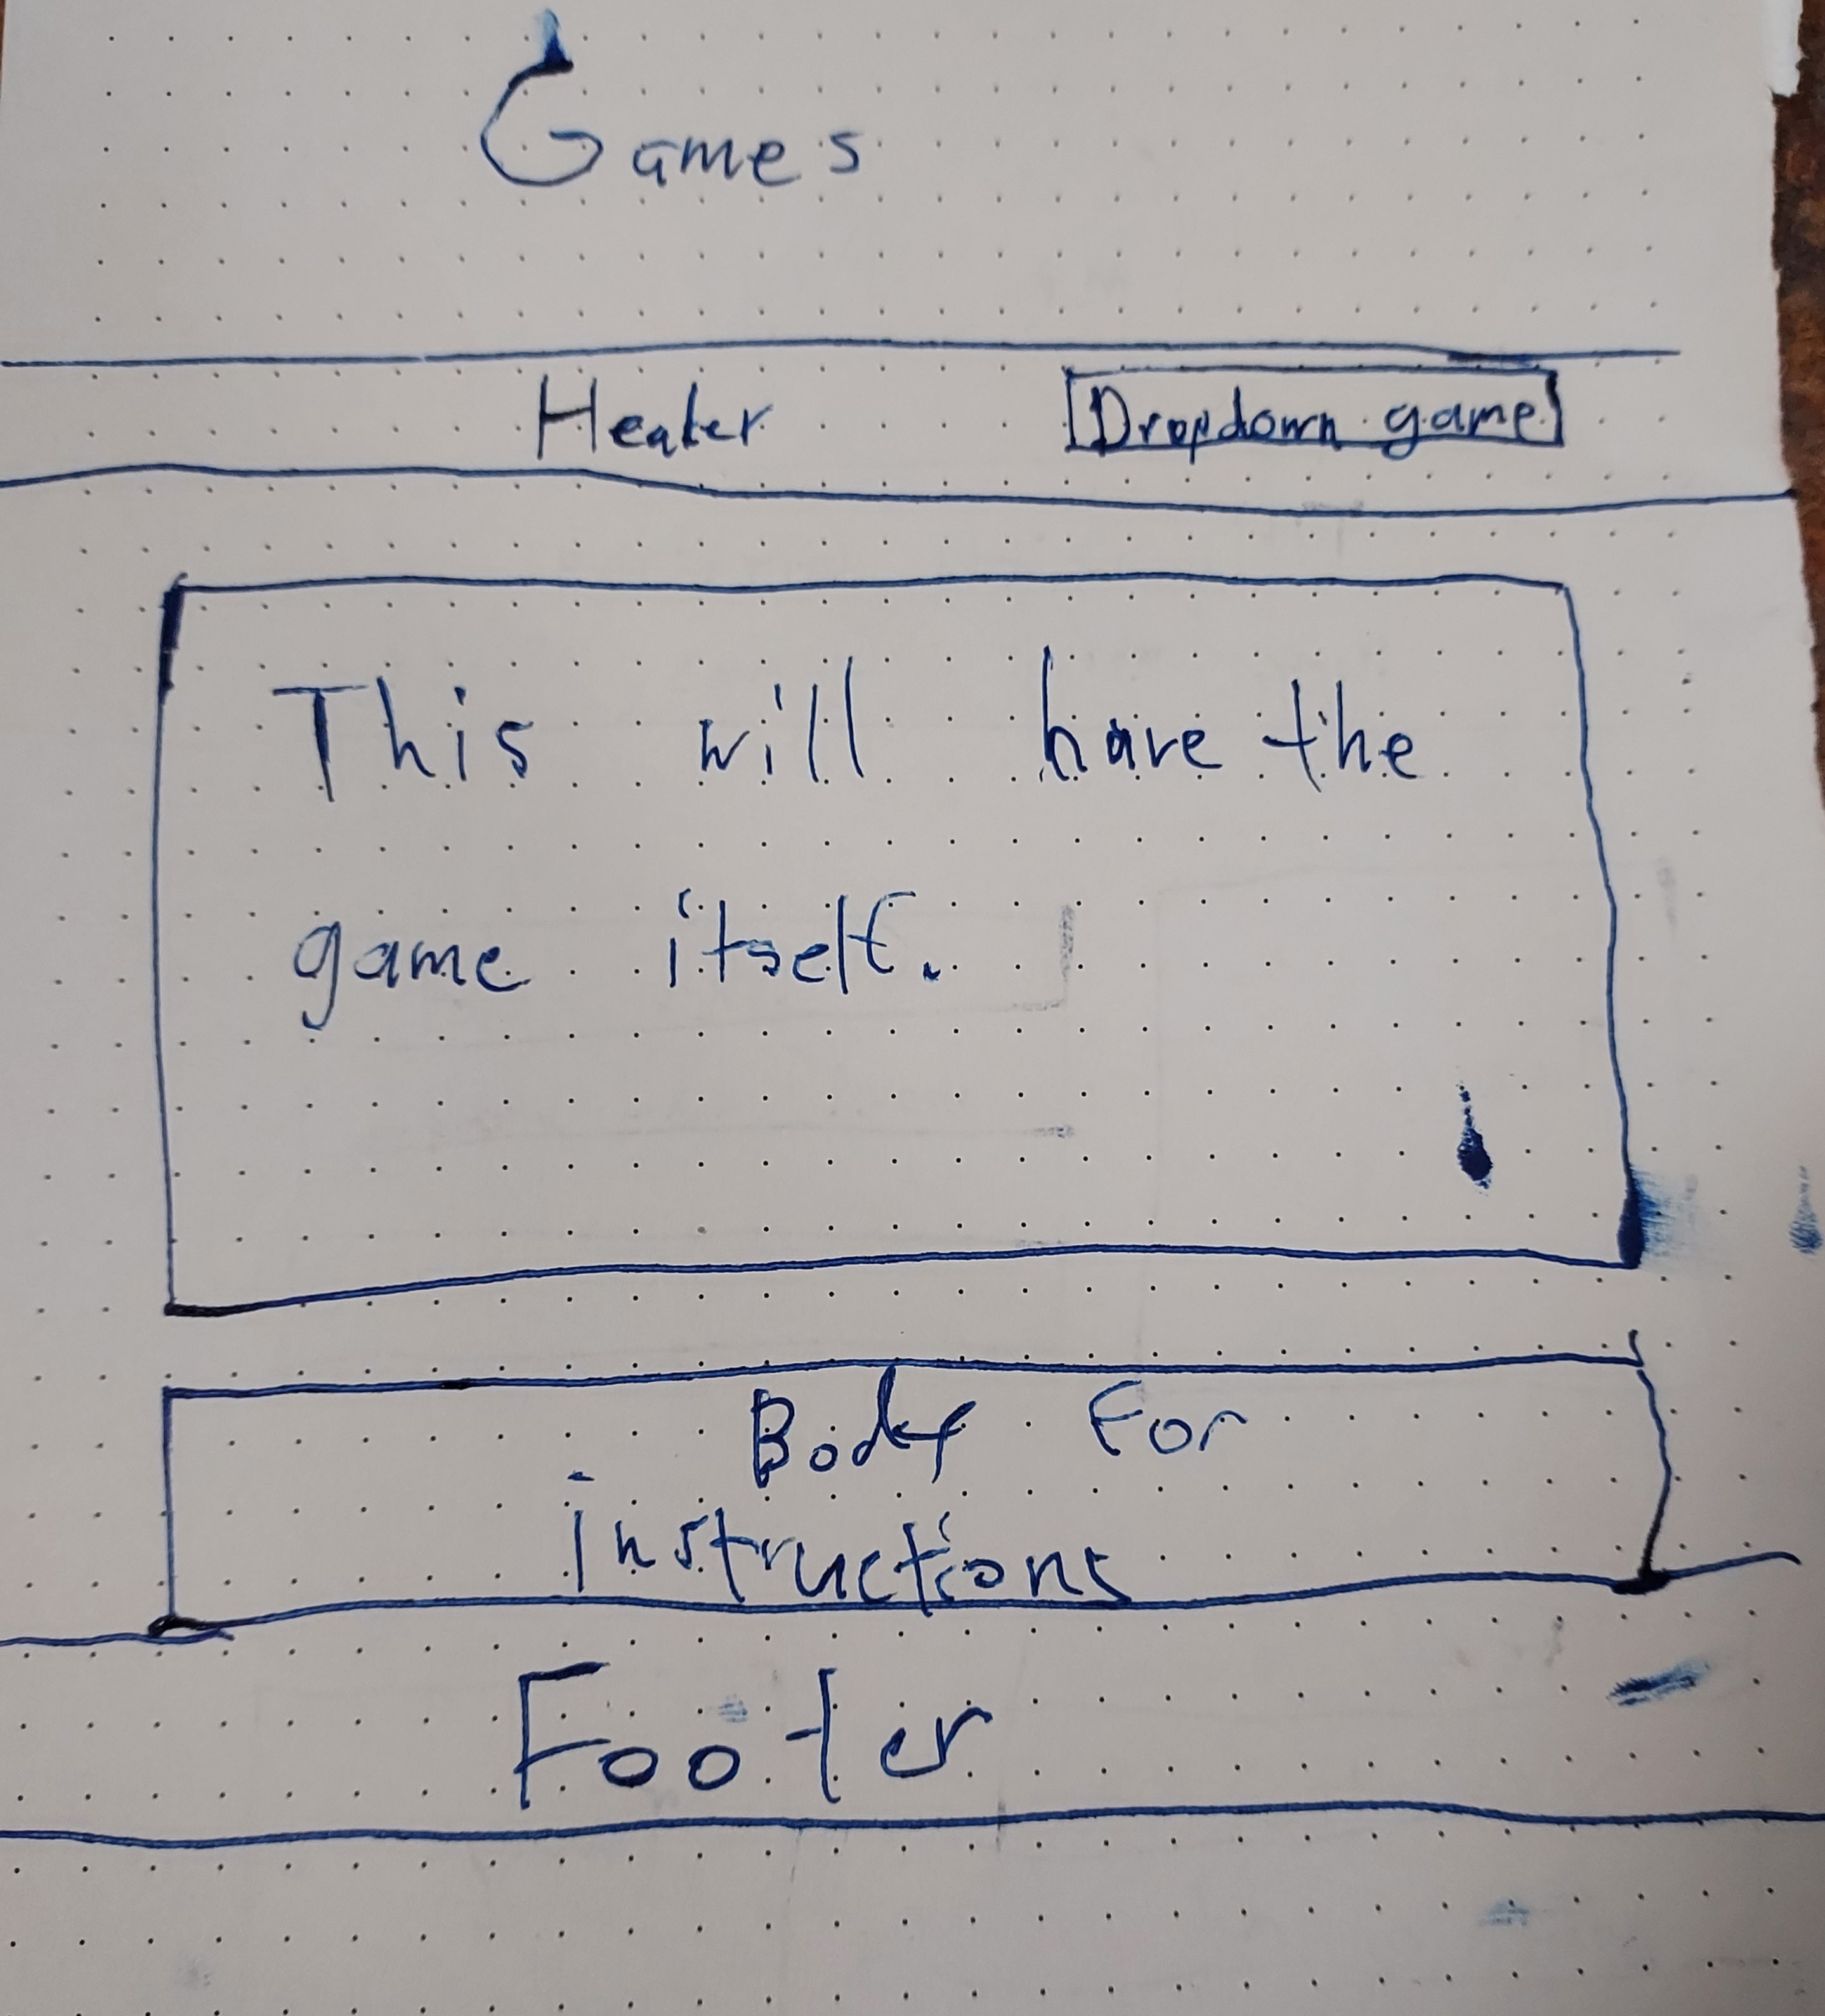 Games
Heater
Dropdown game
This will have the
game itself.
Body for
instructions
Footer